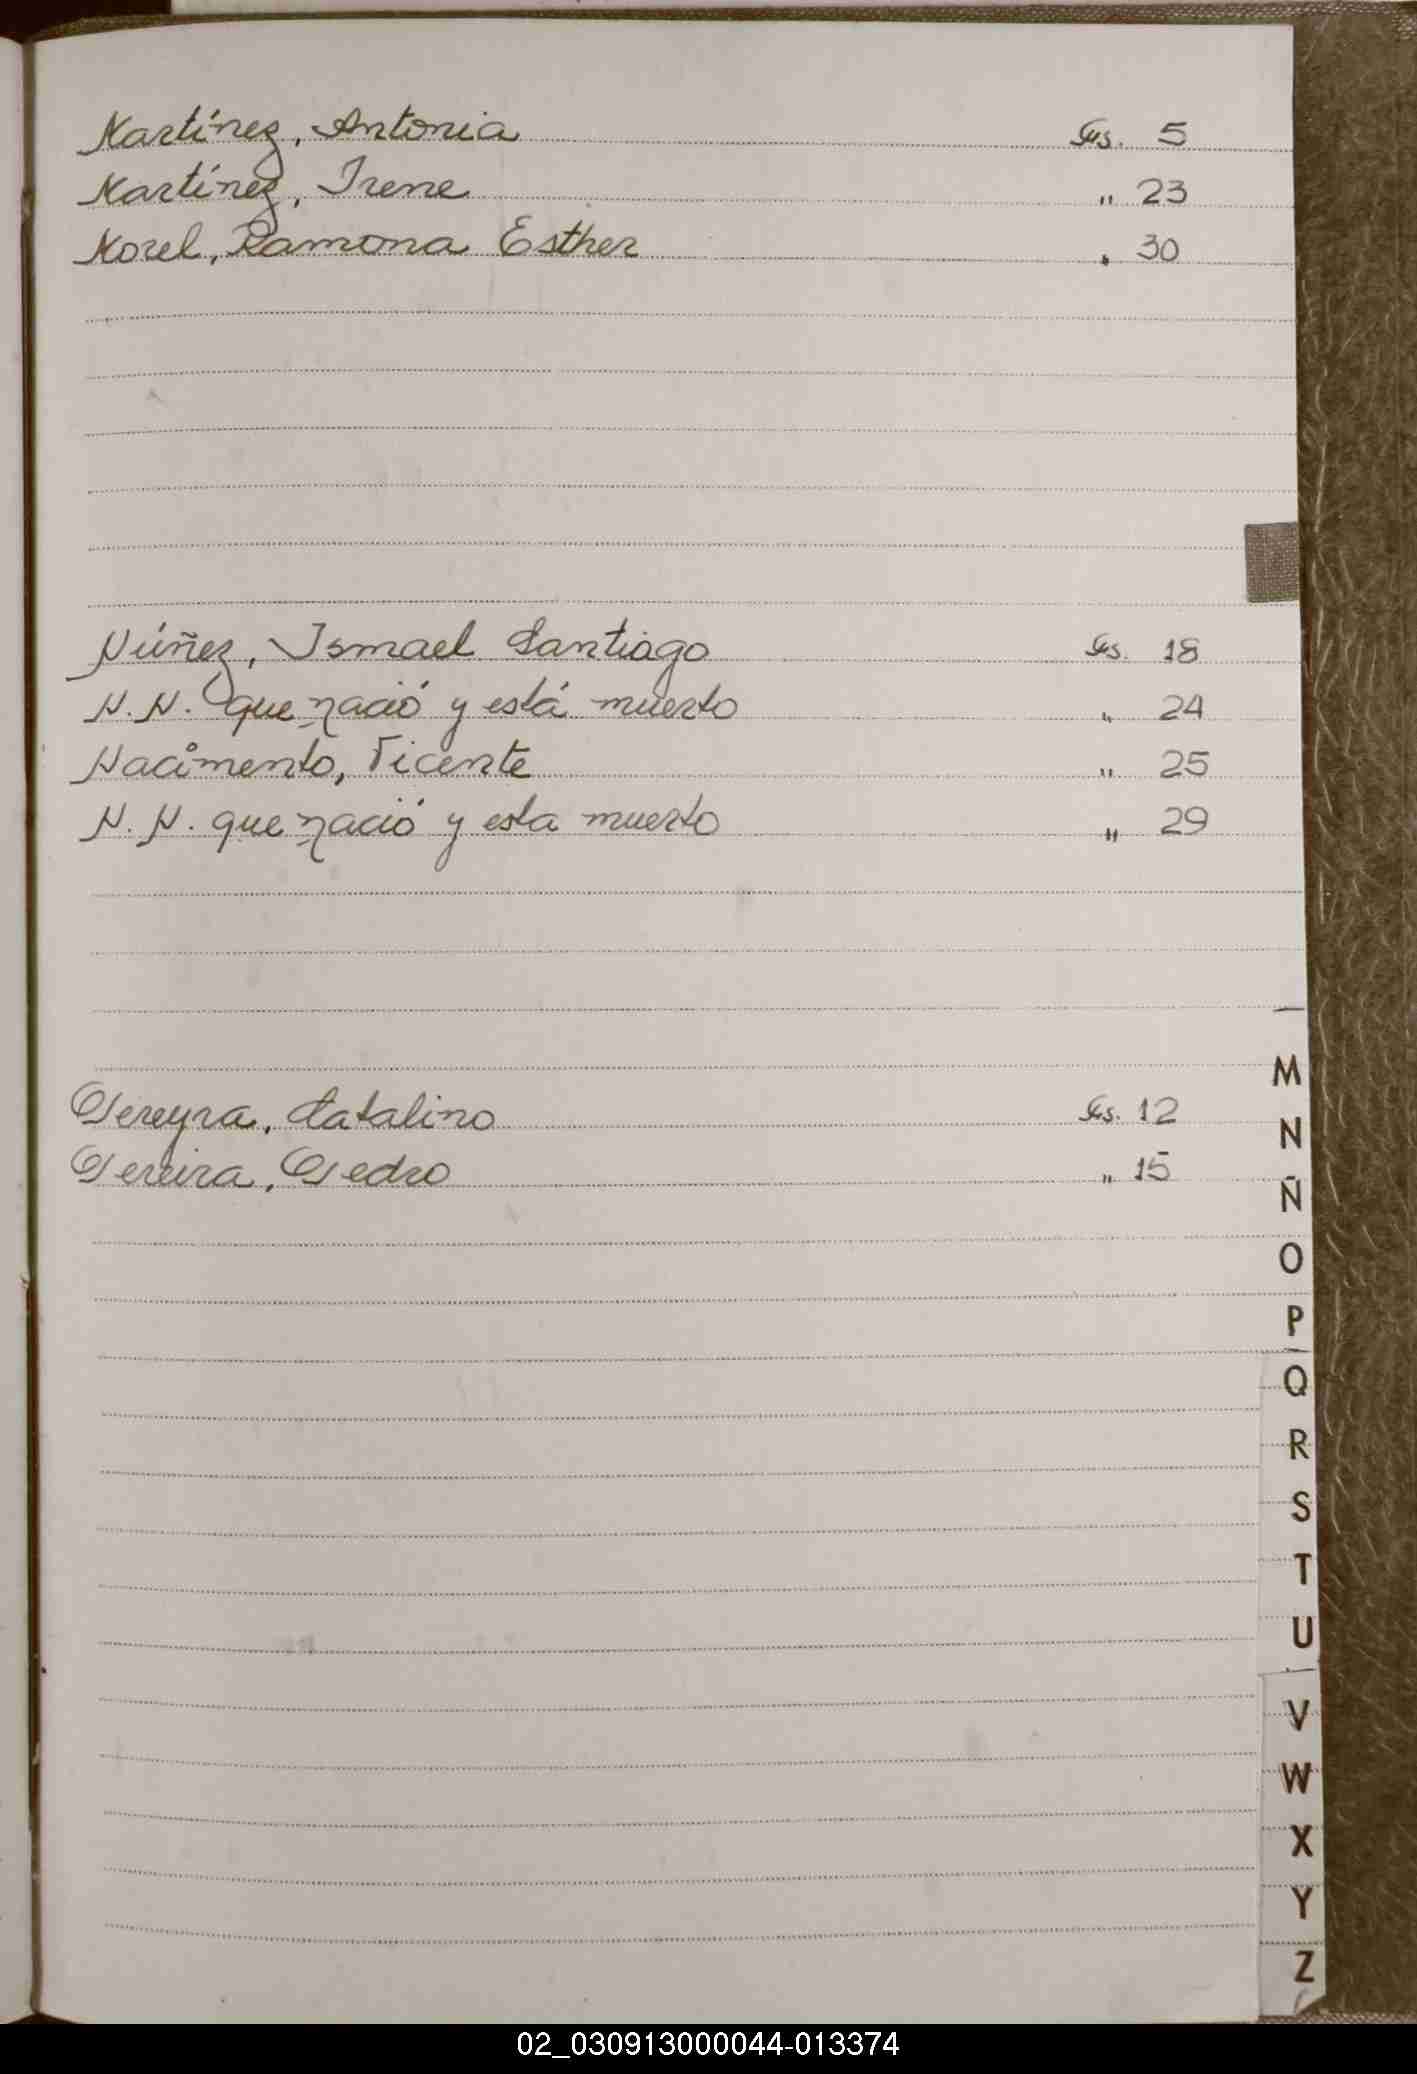 Martínez, Antonia Fs. 5
Martínez, Irene " 23
Morel, Ramona Esther " 30
Núñez, Ismael Santiago Fs. 18
N.N. que nació y está muerto " 24
Nacimento, Vicente " 25
N.N. que nació y esta muerto " 29
Pereyra, Catalino Fs. 12
Pereira, Pedro " 15
M
N
Ñ
O
P
Q
R
S
T
U
V
W
X
Y
Z
02_030913000044-013374